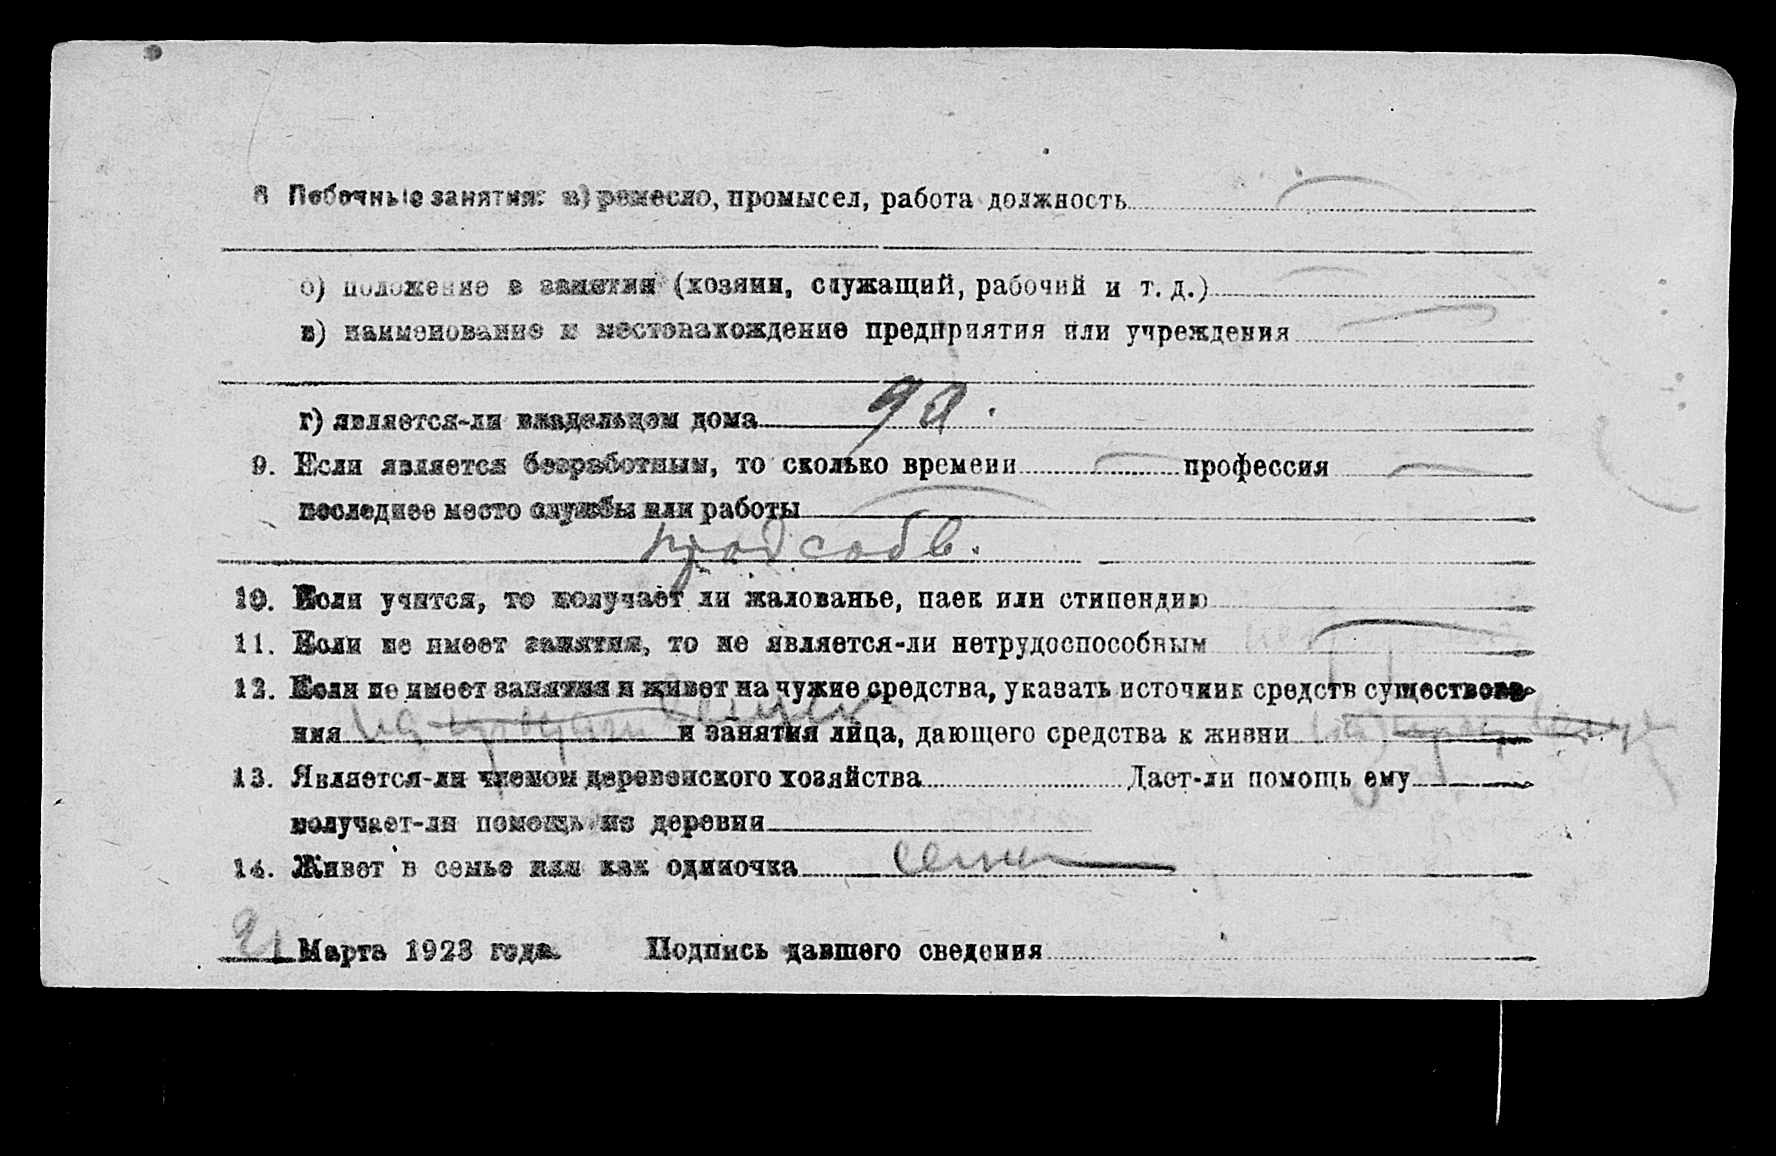 8 Побочные занятия: а) ремесло, промысел, работа должность
б) положение в занятии (хозяин, служащий, рабочий и т. д.)
в) наименование и местонахождение предприятия или учреждения
г) является-ли владельцем дома да.
9. Если является безработным, то сколько времени профессия
последнее место службы или работы
10. Если учится, то получает ли жалованье, паек или стипендию
11. Если не имеет занятия, то не является-ли нетрудоспособным
12. Если не имеет занятия и живет на чужие средства, указать источник средств существова-
ния и занятия лица, дающего средства к жизни
13. Является-ли членом деревенского хозяйства Дает-ли помощь ему
получает-ли помощь из деревни
14. Живет в семье или как одиночка семьи
21 Марта 1923 года. Подпись давшего сведения